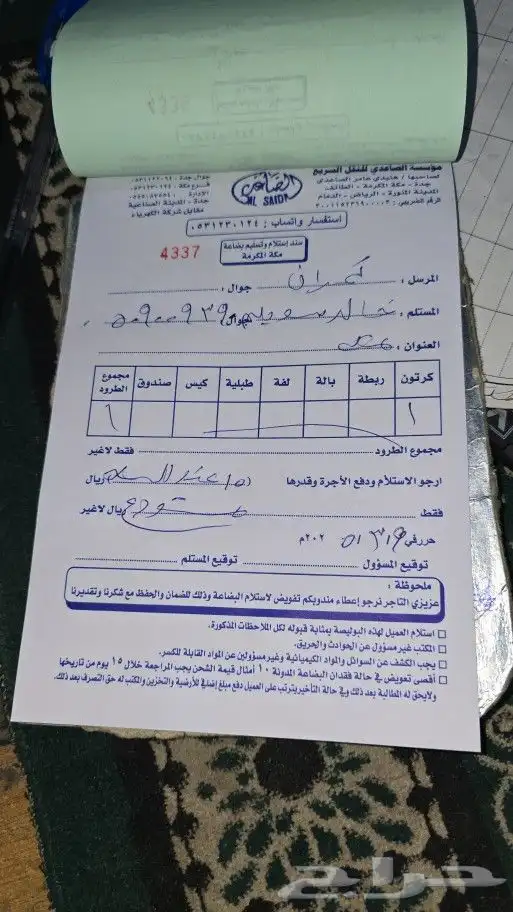 مؤسسة الصاعدي للنقل السريع
لصاحبها / هنيدي عامر الصاعدي
جدة - مكة المكرمة - الطائف
المدينة المنورة - الرياض - الدمام
الصاعدي
AL SAIDI
جدة - المدينة الصناعية
مقابل شركة الكهرباء
استفسار واتساب : ٠٥٣١٢٣٠١٢٤
4337
سند إستلام وتسليم بضاعة
مكة المكرمة
المرسل : كمران جوال :
المستلم : خالد جوال
العنوان :
كرتون ربطة بالة لفة طبلية كيس صندوق مجموع الطرود
١ ١
مجموع الطرود فقط لاغير
ارجو الاستلام ودفع الأجرة وقدرها ريال
فقط ريال لاغير
حرر في ٢٠٢ م
توقيع المسؤول توقيع المستلم
ملحوظة :
عزيزي التاجر نرجو إعطاء مندوبكم تفويض لاستلام البضاعة وذلك للضمان والحفظ مع شكرنا وتقديرنا
استلام العميل لهذه البوليصة بمثابة قبوله لكل الملاحظات المذكورة.
المكتب غير مسؤول عن الحوادث والحريق.
يجب الكشف عن السوائل والمواد الكيميائية وغير مسؤولين عن المواد القابلة للكسر.
أقصى تعويض في حالة فقدان البضاعة المدونة ١٠ أمثال قيمة الشحن يجب المراجعة خلال ١٥ يوم من تاريخها
ولايحق له المطالبة بعد ذلك وفي حالة التأخير يترتب على العميل دفع مبلغ إضافي للأرضية والتخزين والمكتب له حق التصرف بعد ذلك.
حراج